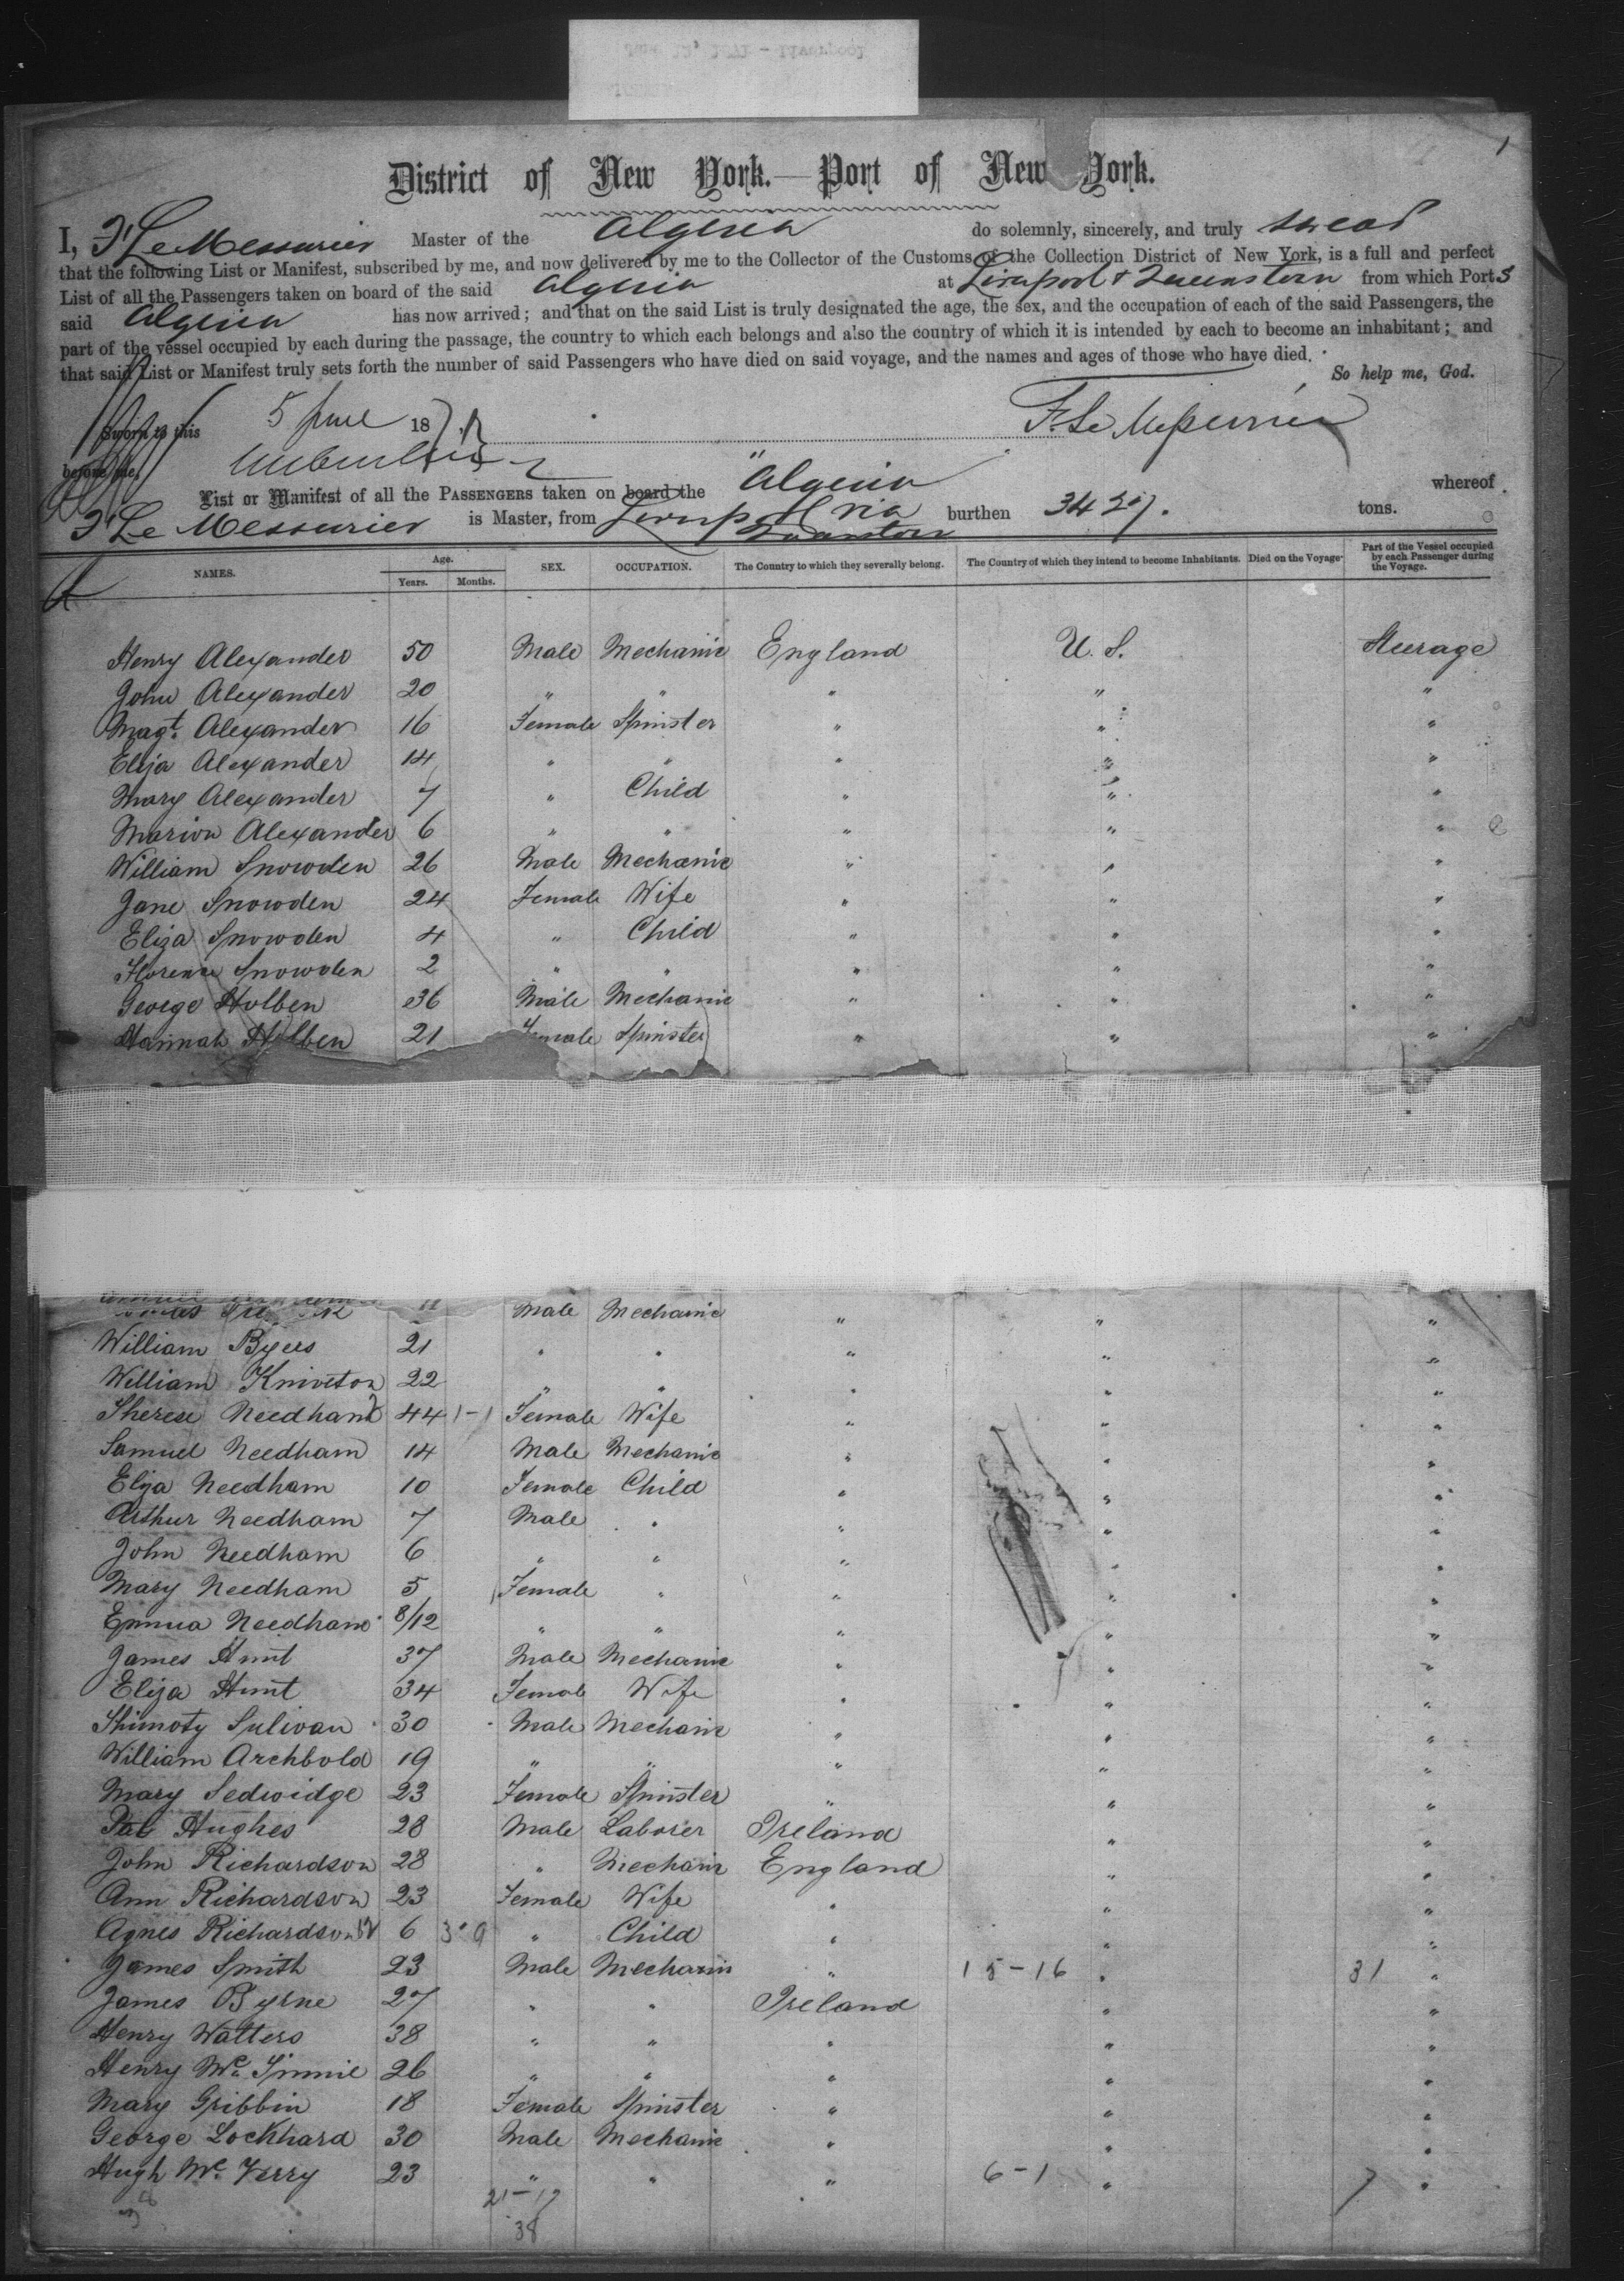 1
District of New York.—Port of New York.
I, F Le Messurier Master of the Algeria do solemnly, sincerely, and truly swear
that the following List or Manifest, subscribed by me, and now delivered by me to the Collector of the Customs of the Collection District of New York, is a full and perfect
List of all the Passengers taken on board of the said Algeria at Liverpool & Queenstown from which Ports
said Algeria has now arrived; and that on the said List is truly designated the age, the sex, and the occupation of each of the said Passengers, the
part of the vessel occupied by each during the passage, the country to which each belongs and also the country of which it is intended by each to become an inhabitant; and
that said List or Manifest truly sets forth the number of said Passengers who have died on said voyage, and the names and ages of those who have died.
So help me, God.
Sworn to this 5 June 187 F. Le Messurier
before me,
List or Manifest of all the PASSENGERS taken on board the "Algeria whereof
F Le Messurier is Master, from Liverpool via Queenstown burthen 3427. tons.
NAMES. Age. Years. Months. SEX. OCCUPATION. The Country to which they severally belong. The Country of which they intend to become Inhabitants. Died on the Voyage. Part of the Vessel occupied by each Passenger during the Voyage.
Henry Alexander 50 Male Mechanic England U. S. Steerage
John Alexander 20 " " " " "
Magt. Alexander 16 Female Spinster " " "
Eliza Alexander 14 " " " " "
Mary Alexander 7 " Child " " "
Marion Alexander 6 " " " " "
William Snowden 26 Male Mechanic " " "
Jane Snowden 24 Female Wife " " "
Eliza Snowden 4 " Child " " "
Florence Snowden 2 " " " " "
George Holben 36 Male Mechanic " " "
Hannah Holben 21 Female Spinster " " "
Male Mechanic " " "
William Byers 21 " " " " "
William Kniveton 22 " " " " "
Therese Needham 44 1-1 Female Wife " " "
Samuel Needham 14 Male Mechanic " " "
Eliza Needham 10 Female Child " " "
Arthur Needham 7 Male " " " "
John Needham 6 " " " " "
Mary Needham 5 Female " " " "
Emma Needham 8/12 " " " " "
James Hunt 37 Male Mechanic " " "
Eliza Hunt 34 Female Wife " " "
Thimoty Sulivan 30 Male Mechanic " " "
William Archbold 19 " " " " "
Mary Sedwidge 23 Female Spinster " " "
Pat Hughes 28 Male Laborer Ireland " "
John Richardson 28 " Mechanic England " "
Ann Richardson 23 Female Wife " " "
Agnes Richardson 6 " Child " " "
James Smith 23 Male Mechanic " 15-16 " 31 "
James Byrne 27 " " Ireland " "
Henry Watters 38 " " " " "
Henry Mc. 26 " " " " "
Mary Gribbin 18 Female Spinster " " "
George Lockhard 30 Male Mechanic " " "
Hugh Mc. Verry 23 " " " 6-1 " 7 "
21-17
38